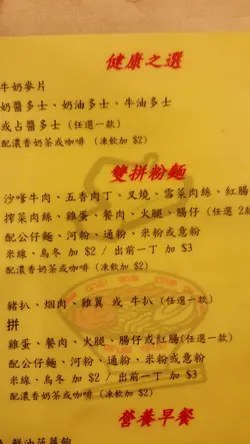 健康之選
牛奶麥片
奶醬多士、奶油多士、牛油多士
或占醬多士 (任選一款)
配濃香奶茶或咖啡 (凍飲加 $2)
雙拼粉麵
沙嗲牛肉、五香肉丁、叉燒、雪菜肉絲、紅腸
搾菜肉絲、雞蛋、餐肉、火腿、腸仔 (任選 2
配公仔麵、河粉、通粉、米粉或意粉
米線、烏冬 加 $2 / 出前一丁 加 $3
配濃香奶茶或咖啡 (凍飲加 $2)
豬扒、烟肉、雞翼 或 牛扒 (任選一款)
拼
雞蛋、餐肉、火腿、腸仔或紅腸(任選一款)
配公仔麵、河粉、通粉、米粉或意粉
米線、烏冬 加 $2 / 出前一丁 加 $3
配濃香奶茶或咖啡 (凍飲加 $2)
營養早餐